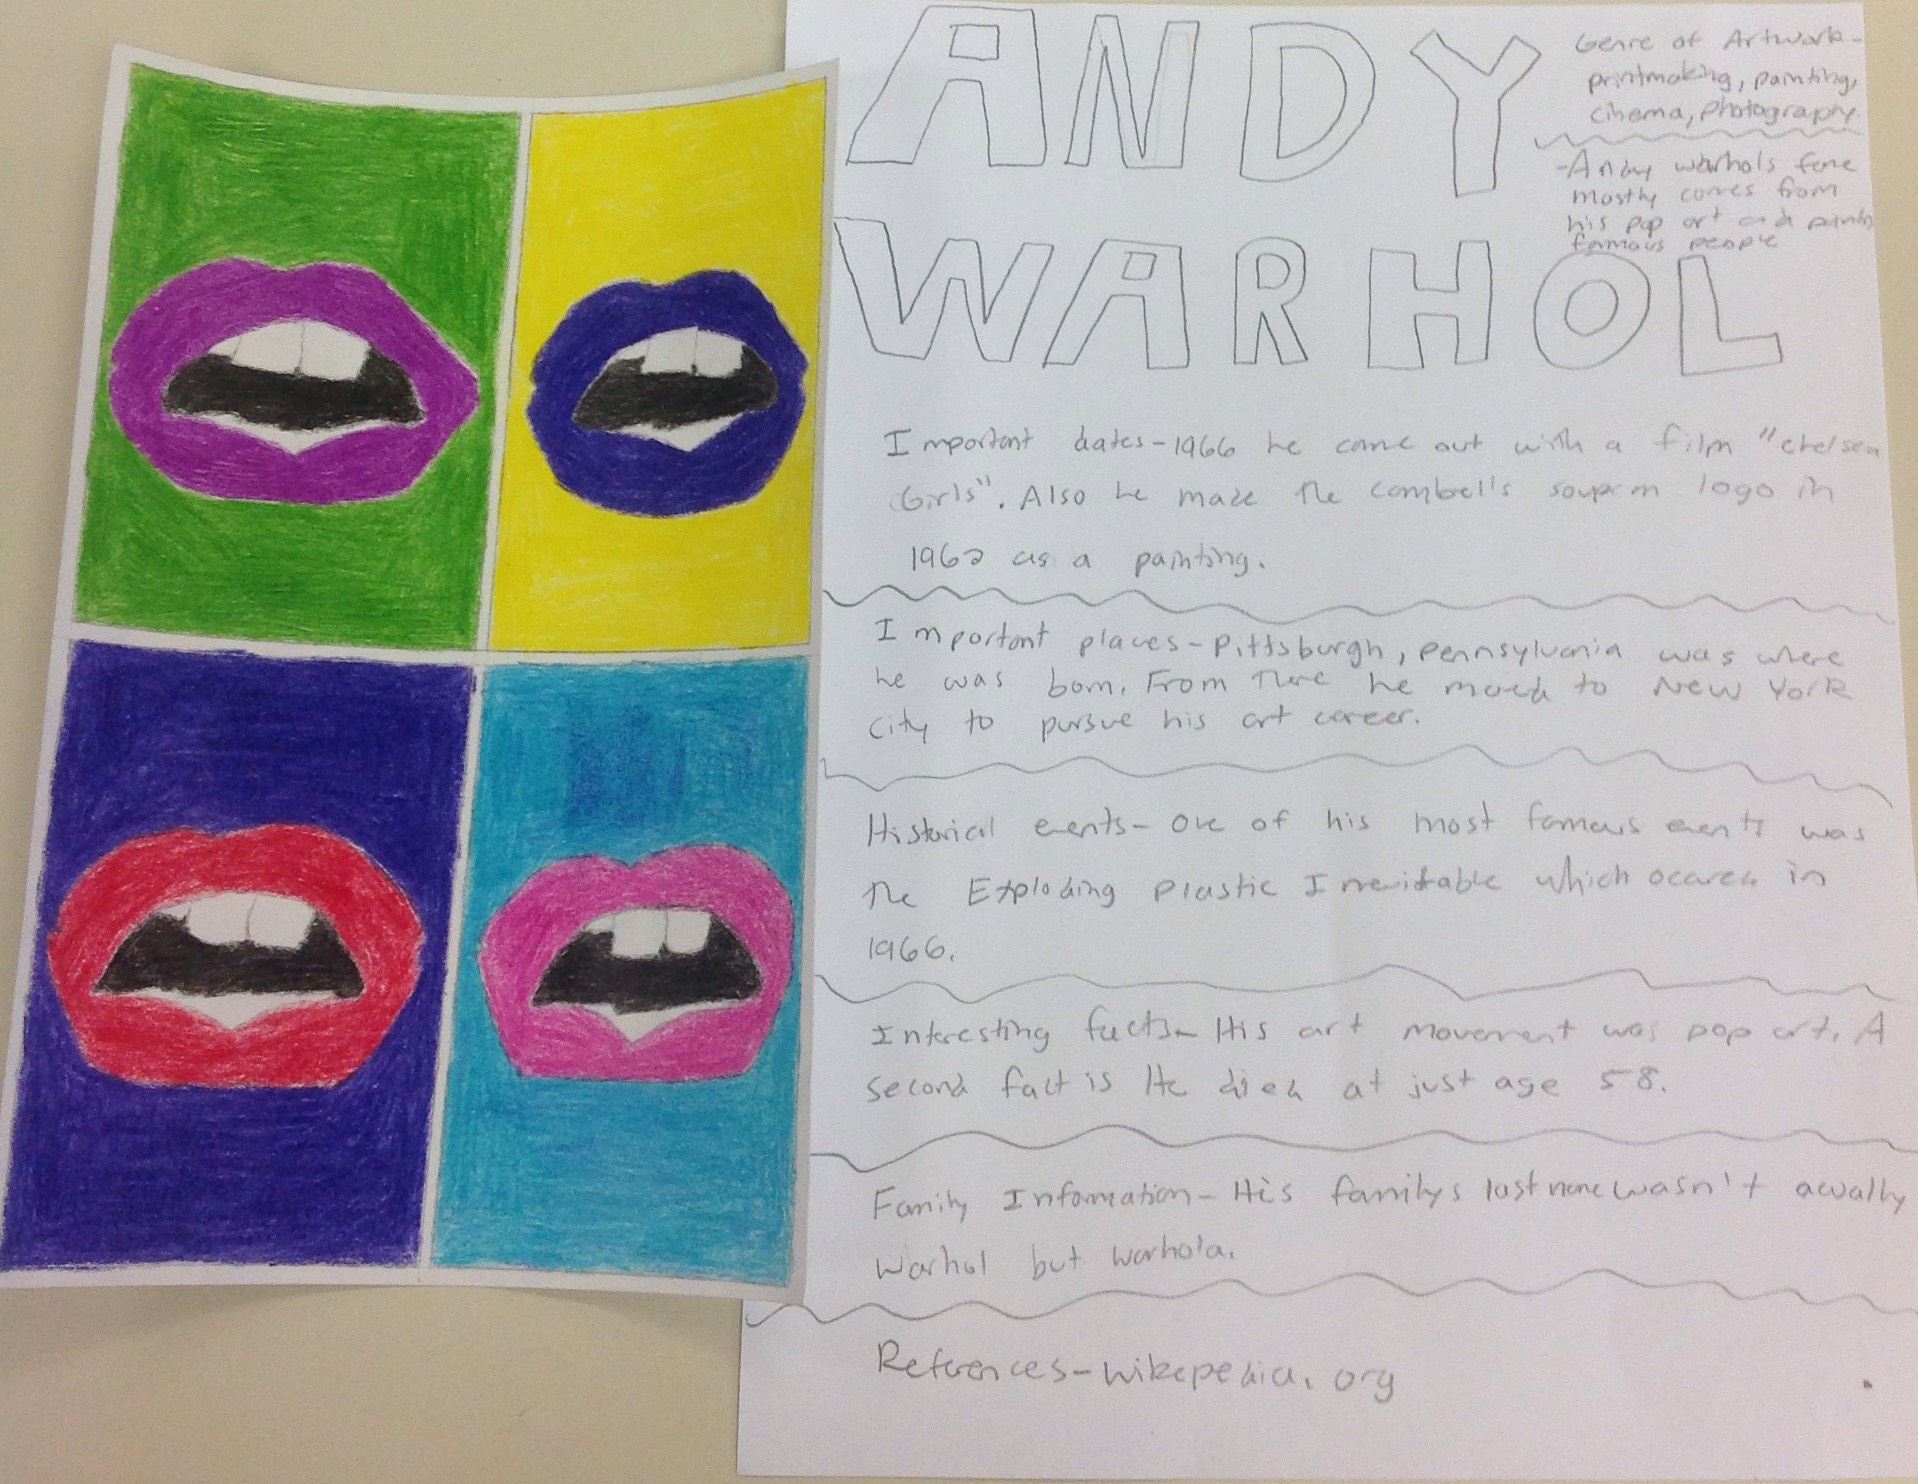 ANDY
WARHOL
Genre of Artwork-
printmaking, painting,
cinema, photography
-Andy warhols fame
mostly comes from
his pop art and
famous people
Important dates-1966 he came out with a film "chelsea
Girls". Also he made the cambell's logo in
1962 as a painting.
Important places-Pittsburgh, pennsylvania was where
he was born. From there he moved to New York
City to pursue his art career.
Historical events- one of his most famous events was
the Exploding plastic Inevitable which occured in
1966.
Interesting facts- His art movement was pop art. A
second fact is He died at just age 58.
Family Information- His familys last name wasn't acually
Warhol but warhola.
References-wikepedia.org